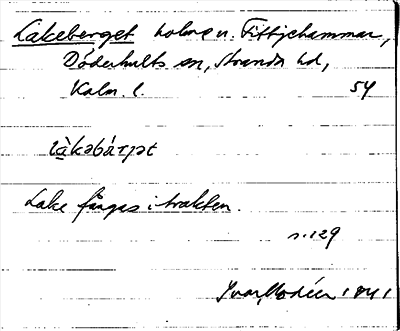 Lakeberget holme n. Fittjehammar,
Döderhults sn, Stranda hd,
Kalm. l. 54
Lake fångas i trakten.
s. 129
Ivar Modéer 1941